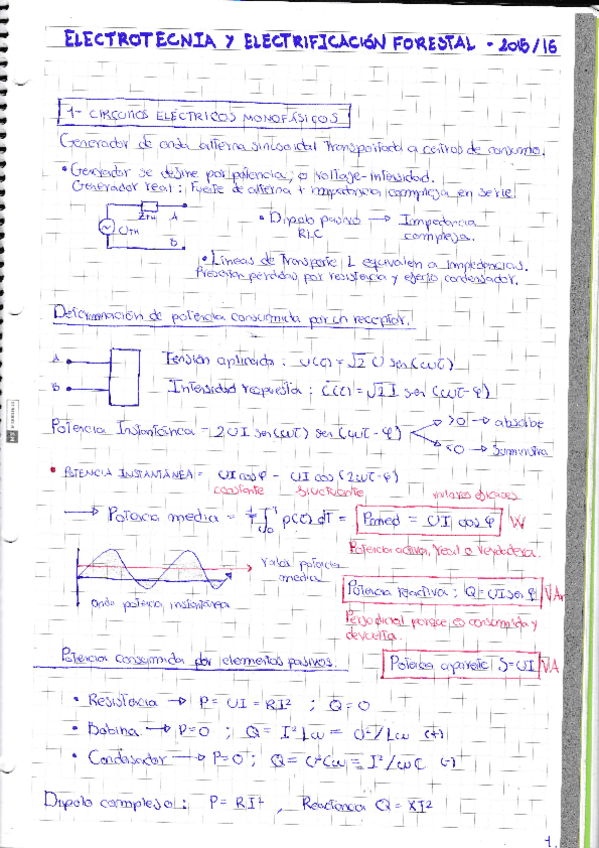 ELECTROTECNIA Y ELECTRIFICACIÓN FORESTAL - 2015/16
1- CIRCUITOS ELÉCTRICOS MONOFÁSICOS
Generador de onda alterna sinusoidal transportada a centros de consumo.
• Generador se define por potencia, o voltaje-intensidad.
Generador real: Fuente de alterna + impedancia compleja en serie.
ZTH A
UTH
B
• Dipolo pasivo → Impedancia
RLC compleja.
• Líneas de transporte, L equivalen a impedancias.
Presentan pérdidas por resistencia y efecto condensador.
Determinación de potencia consumida por un receptor.
A
B
Tensión aplicada: U(t) = √2 U sen(ωt)
Intensidad respuesta: i(t) = √2 I sen(ωt-φ)
Potencia Instantánea = 2UI sen(ωt) sen(ωt-φ)
>0 → absorbe
<0 → suministra
• POTENCIA INSTANTÁNEA = UI cos φ - UI cos(2ωt-φ)
constante fluctuante valores eficaces
→ Potencia media = 1/T ∫₀ᵀ p(t) dT = Pmed = UI cos φ W
Potencia activa, real o verdadera.
valor potencia
media
onda potencia instantánea
Potencia reactiva: Q = UI sen φ VAr
Persudicial porque es consumida y
devuelta.
Potencia consumida por elementos pasivos.
Potencia aparente: S = UI VA
• Resistencia → P = UI = RI² ; Q = 0
• Bobina → P=0 ; Q = I²Lω = U²/Lω (+)
• Condensador → P=0 ; Q = U²Cω = I²/ωC (-)
Dipolo complejo: P = RI² , Reactancia Q = XI²
1.